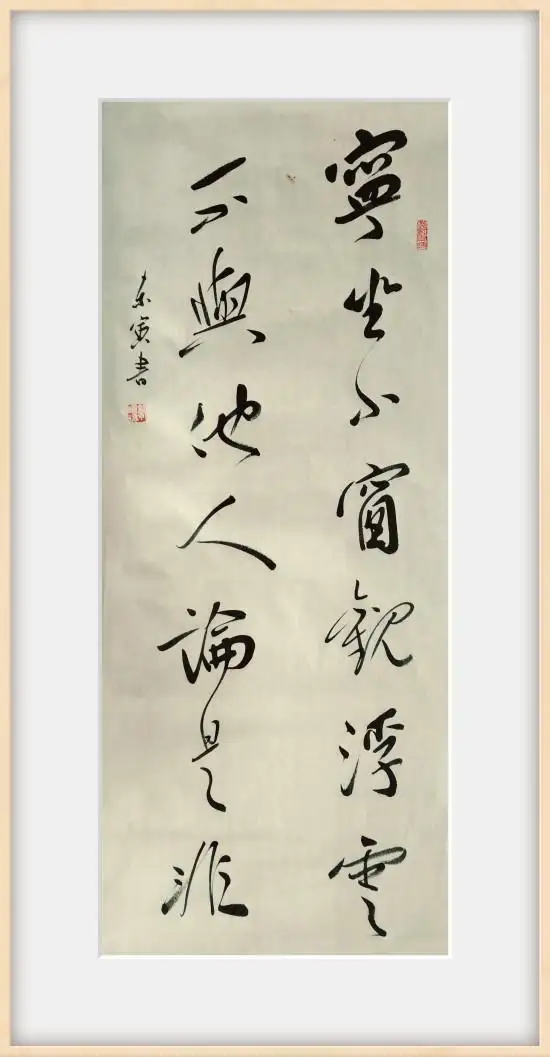 寧坐小窗觀浮雲
不與他人論是非
寅書